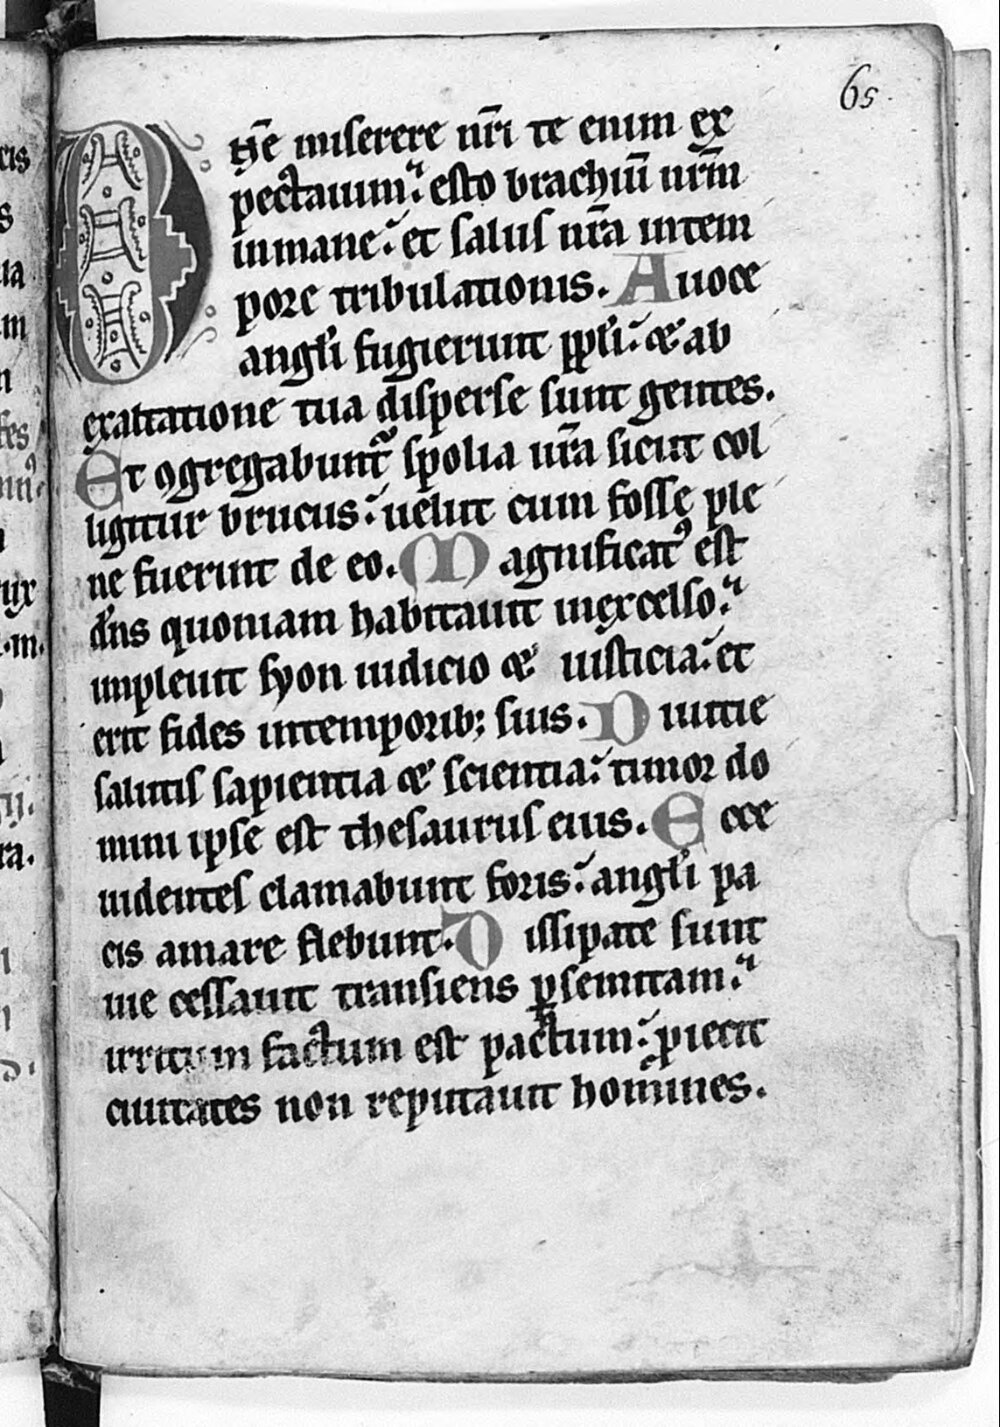 65
Dn̄e miserere nr̄i te enim ex
pectauim᷒: esto brachiū nr̄m
inmane: et salus nr̄a intem
pore tribulationis. A uoce
angl̓i fugierunt ppl̓i: & ab
exaltatione tua disperse sunt gentes.
Et ꝯgregabunt᷑ spolia ur̄a sicut col
ligitur brucus: uelut cum fosse ple
ne fuerint de eo. Magnificat᷒ est
dn̄s quoniam habitauit inexcelso:
impleuit syon iudicio & iusticia: et
erit fides intemporib; suis. Diuitie
salutis sapientia & scientia: timor do
mini ipse est thesaurus eius. Ecce
uidentes clamabunt foris: angl̓i pa
cis amare flebunt. Dissipate sunt
uie cessauit transiens ꝑsemitam:
irritum factum est pactum: ꝓiecit
ciuitates non reputauit homines.